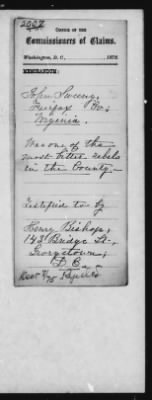 2002
OFFICE OF THE
Commissioners of Claims,
Washington, D. C., 187
MEMORANDUM:
John Sweeny,
Fairfax Co.,
Virginia.
Was one of the
most bitter rebels
in the County.—
Testified to by
Henry Bishop,
143 Bridge St.,
Georgetown,
D. C.